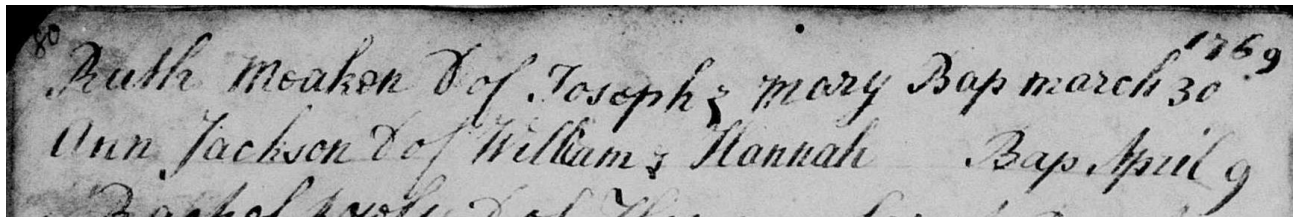 80
1769
Ruth Moaken D of Joseph & Mary Bap march 30
Ann Jackson D of William & Hannah Bap April 9
Rachel D of